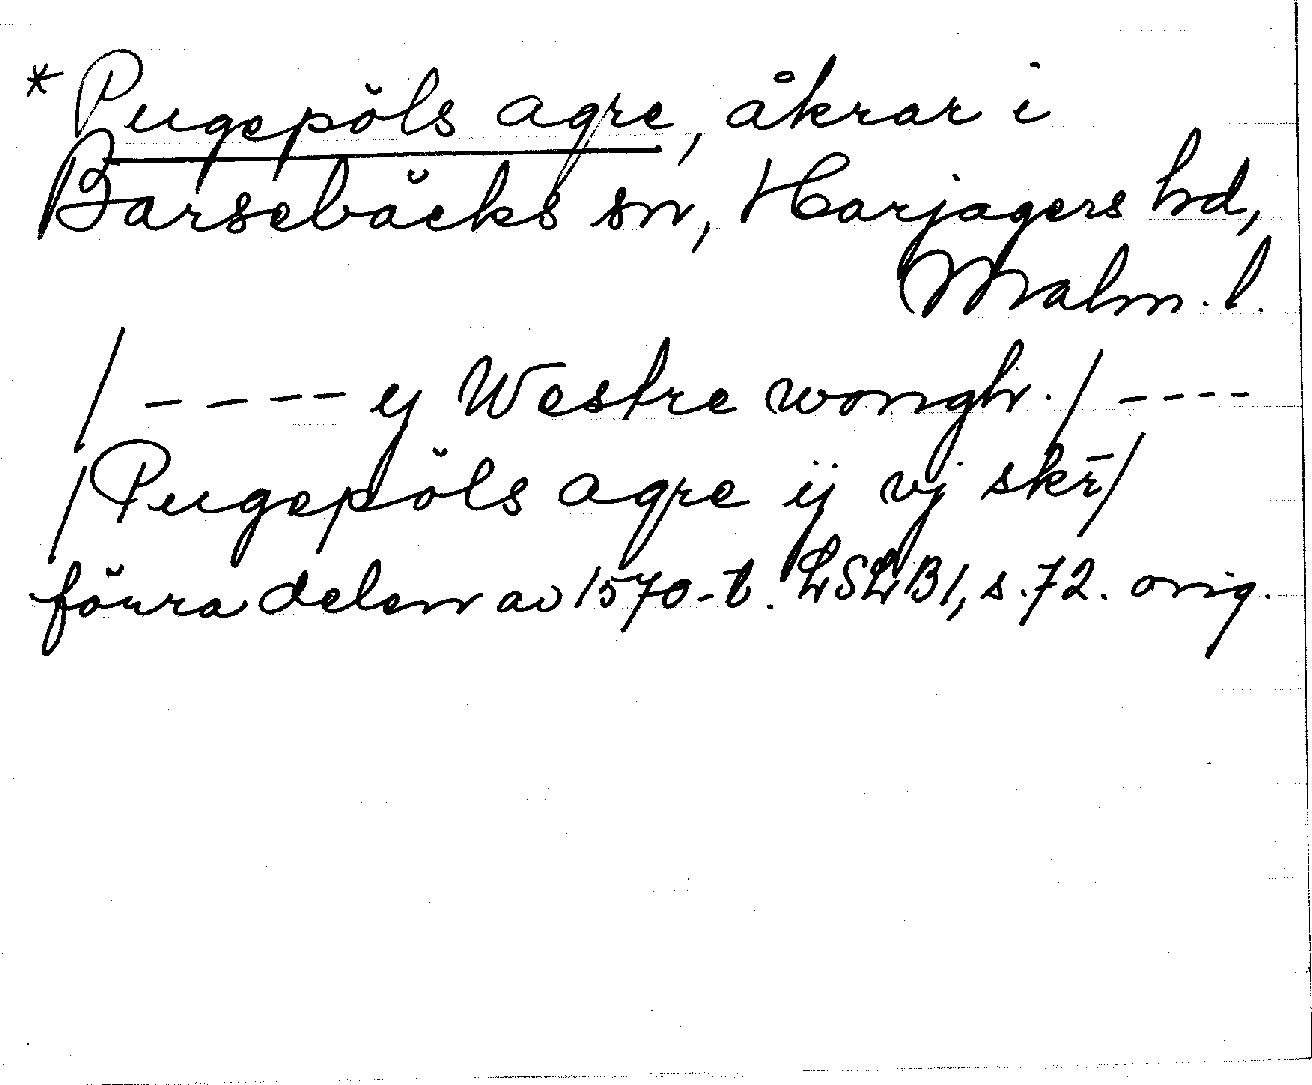 * Pugepöls agre, åkrar i
Barsebäcks sn, Harjagers hd,
Malm. l.
/ - - - - ej Westre wongh. / - - - -
/ Pugepöls agre ij vj skr̄ /
förra delen av 1570-t. LSLB1, s. 72. orig.